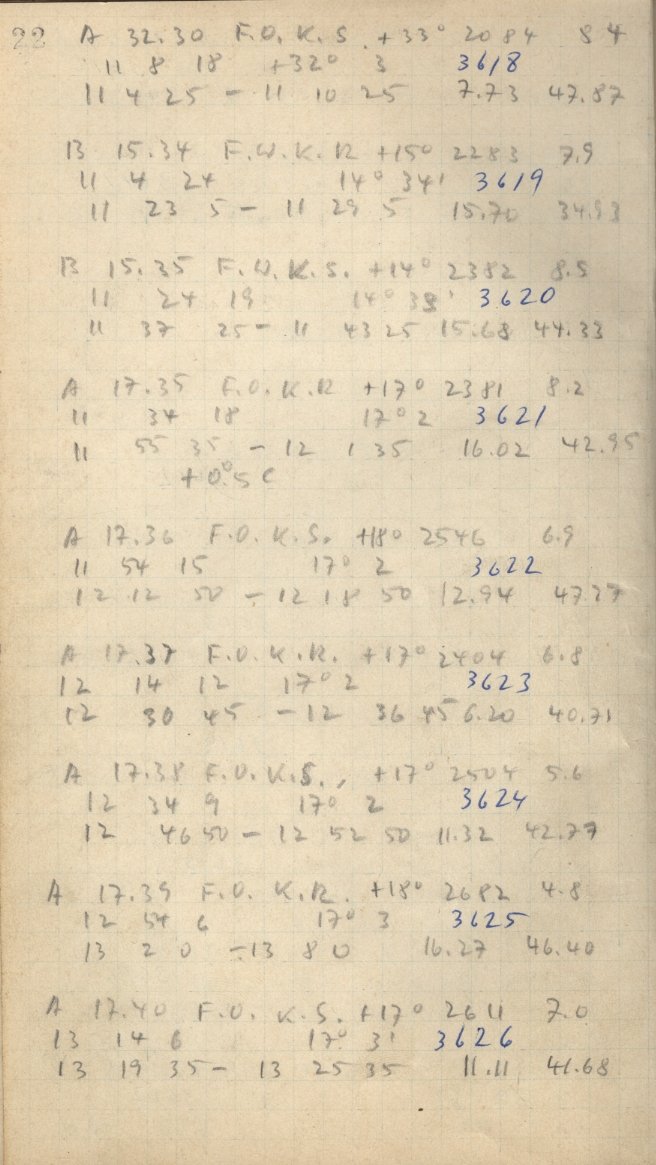 22 A 32.30 F.O. K.S +33° 2084 8 4
11 8 18 +32° 3 3618
11 4 25 - 11 10 25 7.73 47.87
B 15.34 F.W.K.R +15° 2283 7.9
11 4 24 14° 34' 3619
11 23 5 - 11 29 5 15.70 34.93
B 15.35 F.W.K.S. +14° 2382 8.5
11 24 19 14° 38' 3620
11 37 25 - 11 43 25 15.68 44.33
A 17.35 F.O.K.R +17° 2381 8.2
11 34 18 17° 2 3621
11 55 35 - 12 1 35 16.02 42.95
+0°.5 C
A 17.36 F.O.K.S. +18° 2546 6.9
11 54 15 17° 2 3622
12 12 50 - 12 18 50 12.94 47.27
A 17.37 F.O.K.R. +17° 2404 6.8
12 14 12 17° 2 3623
12 30 45 - 12 36 45 6.20 40.71
A 17.38 F.O.K.S., +17° 2504 5.6
12 34 9 17° 2 3624
12 46 50 - 12 52 50 11.32 42.77
A 17.39 F.O. K.R. +18° 2682 4.8
12 54 6 17° 3 3625
13 2 0 - 13 8 0 16.27 46.40
A 17.40 F.O. K.S. +17° 2611 7.0
13 14 6 17° 3' 3626
13 19 35 - 13 25 35 11.11 41.68